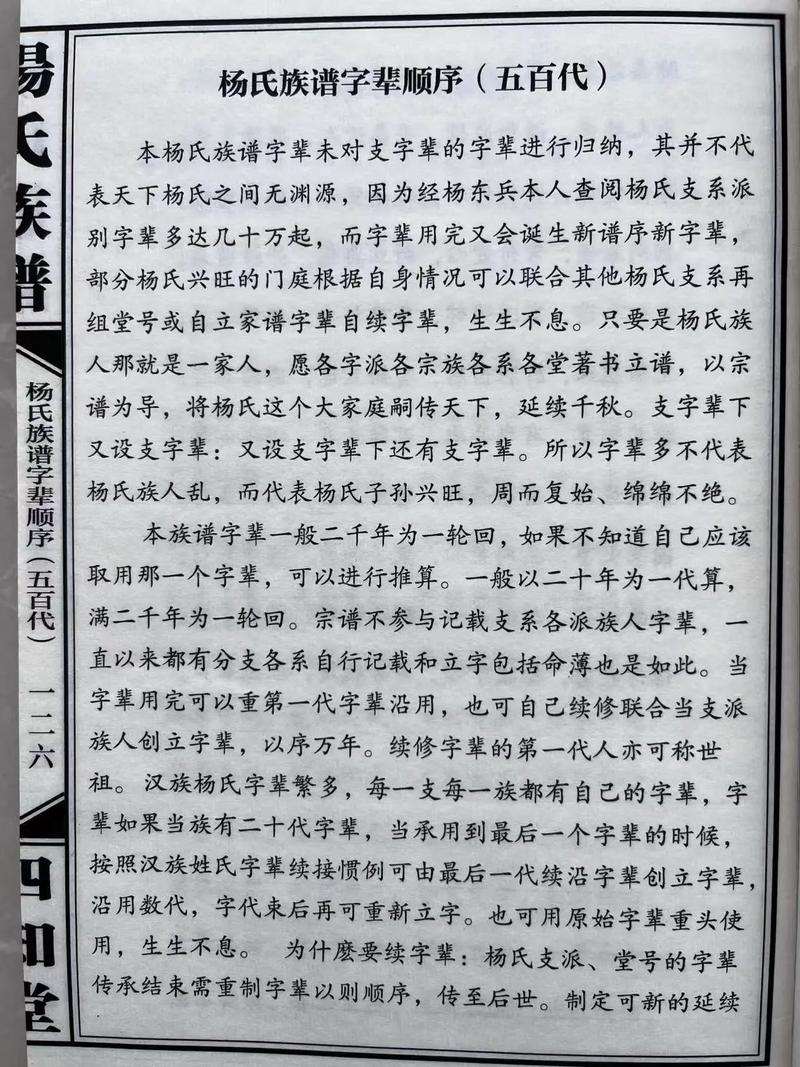 楊氏族譜
杨氏族谱字辈顺序(五百代)
一二六
四知堂
杨氏族谱字辈顺序(五百代)
本杨氏族谱字辈未对支字辈的字辈进行归纳,其并不代
表天下杨氏之间无渊源,因为经杨东兵本人查阅杨氏支系派
别字辈多达几十万起,而字辈用完又会诞生新谱序新字辈,
部分杨氏兴旺的门庭根据自身情况可以联合其他杨氏支系再
组堂号或自立家谱字辈自续字辈,生生不息。只要是杨氏族
人那就是一家人,愿各字派各宗族各系各堂著书立谱,以宗
谱为导,将杨氏这个大家庭嗣传天下,延续千秋。支字辈下
又设支字辈;又设支字辈下还有支字辈。所以字辈多不代表
杨氏族人乱,而代表杨氏子孙兴旺,周而复始、绵绵不绝。
本族谱字辈一般二千年为一轮回,如果不知道自己应该
取用那一个字辈,可以进行推算。一般以二十年为一代算,
满二千年为一轮回。宗谱不参与记载支系各派族人字辈,一
直以来都有分支各系自行记载和立字包括命薄也是如此。当
字辈用完可以重第一代字辈沿用,也可自己续修联合当支派
族人创立字辈,以序万年。续修字辈的第一代人亦可称世
祖。汉族杨氏字辈繁多,每一支每一族都有自己的字辈,字
辈如果当族有二十代字辈,当承用到最后一个字辈的时候,
按照汉族姓氏字辈续接惯例可由最后一代续沿字辈创立字辈,
沿用数代,字代束后再可重新立字。也可用原始字辈重头使
用,生生不息。 为什麽要续字辈:杨氏支派、堂号的字辈
传承结束需重制字辈以则顺序,传至后世。制定可新的延续